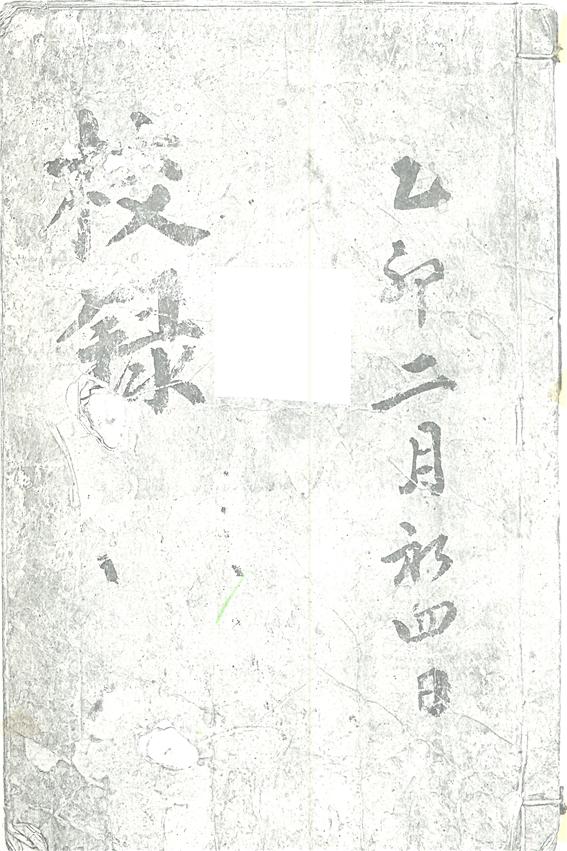 乙卯二月初四日
校錄